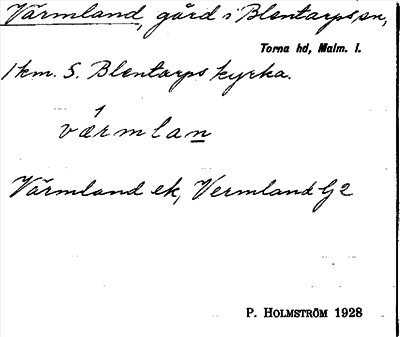 Värmland, gård i Blentarps sn,
Torna hd, Malm. l.
1 km. S. Blentarps kyrka.
1
værmlan
Värmland ek, Vermland G2
P. HOLMSTRÖM 1928